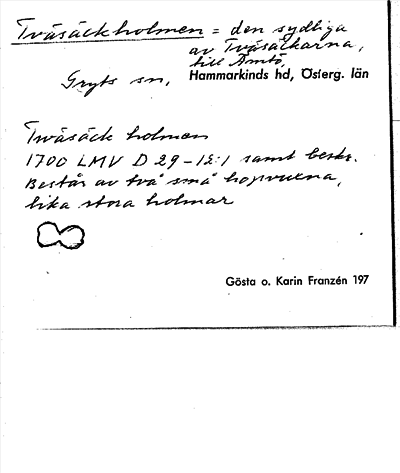 Tvåsäckholmen = den sydliga
av Tvåsäckarna,
till Ämtö,
Gryts sn, Hammarkinds hd, Österg. län
Twåsäck holmen
1700 LMV D 29-12:1 samt beskr.
Består av två små hopvuxna,
lika stora holmar
Gösta o. Karin Franzén 197